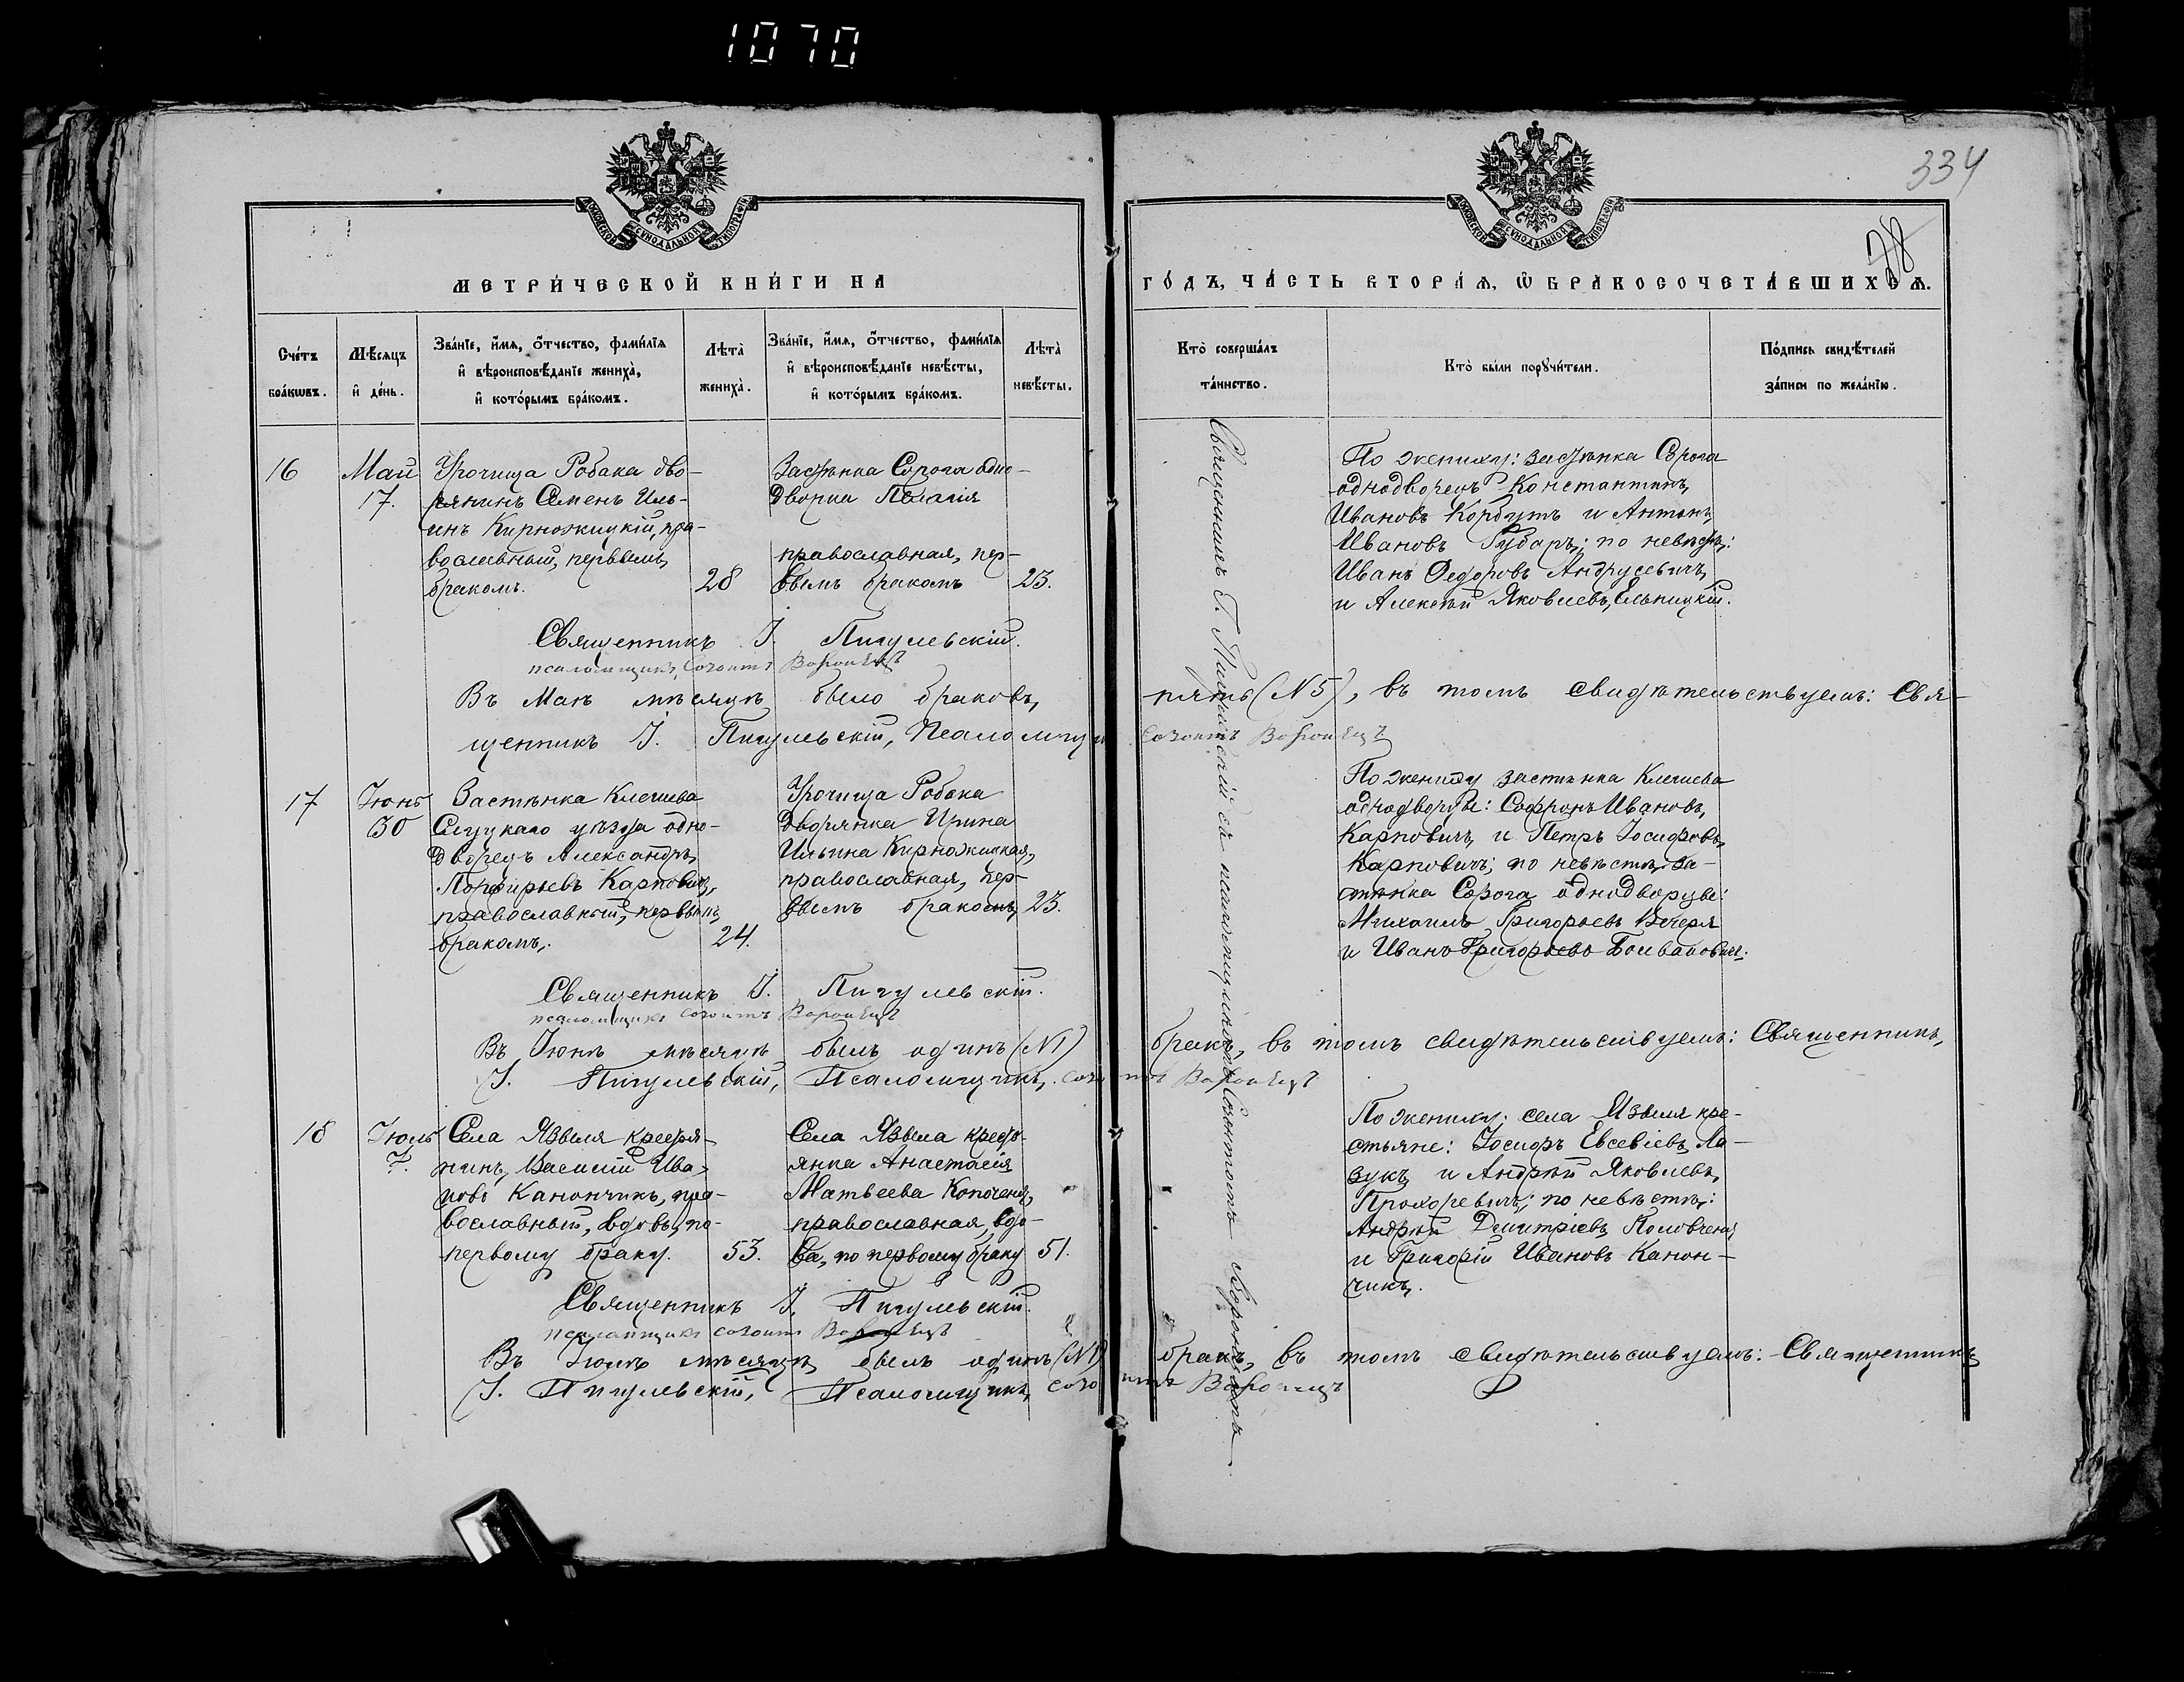 1070
334
78
МОСКОВСКОЙ СУНОДАЛЬНОЙ ТИПОГРАФІИ
МОСКОВСКОЙ СУНОДАЛЬНОЙ ТИПОГРАФІИ
МЕТРИ́ЧЕСКОЙ КНИ́ГИ НА
ГО́ДЪ, ЧА́СТЬ ВТОРА́Ѧ, Ѡ БРАКОСОЧЕТА́ВШИХСѦ.
Сче́тъ бра́кѡвъ.
Мѣ́сѧцъ и҆ де́нь.
Зва́нїе, и҆́мѧ, ѻ҆́тчество, фами́лїѧ и҆ вѣроисповѣ́данїе жениха̀, и҆ кото́рымъ бра́комъ.
Лѣта̀ жениха̀.
Зва́нїе, и҆́мѧ, ѻ҆́тчество, фами́лїѧ и҆ вѣроисповѣ́данїе невѣ́сты, и҆ кото́рымъ бра́комъ.
Лѣта̀ невѣ́сты.
Кто̀ соверша́лъ та́инство.
Кто̀ бы́ли порꙋчи́тели.
По́дпись свидѣ́телей за́писи по жела́нїю.
16
Май
17.
Урочища Робака дво-
рянинъ Семенъ Иль-
инъ Кирножицкій, пра-
вославный, первымъ
бракомъ.
28
Застѣнка Сорога одно-
дворка Пелагія
православная, пер-
вымъ бракомъ
23.
По жениху: застѣнка Сорога
однодворецъ Константинъ
Ивановъ Корбутъ и Антонъ
Ивановъ Губаръ; по невѣстѣ:
Иванъ Ѳедоровъ Андрусевичъ
и Алексѣй Яковлевъ Ельницкій.
Священникъ І. Пигулевскій.
псаломщикъ Созонтъ Воронецъ
Въ Маѣ мѣсяцѣ было браковъ пять (№ 5), въ томъ свидѣтельствуемъ: Свя-
щенникъ І. Пигулевскій, Псаломщикъ Созонтъ Воронецъ
17
Іюнь
30
Застѣнка Клешева
Слуцкаго уѣзда одно-
дворецъ Александръ
Порфирьевъ Карповичъ,
православный, первымъ
бракомъ.
24.
Урочища Робака
дворянка Ирина
Ильина Кирножицкая,
православная, пер-
вымъ бракомъ
23.
По жениху застѣнка Клешева
однодворцы: Софронъ Ивановъ
Карповичъ и Петръ Іосифовъ
Карповичъ; по невѣстѣ за-
стѣнка Сорога однодворцы:
Михаилъ Григорьевъ Вечеря
и Иванъ Григорьевъ Болвановичъ.
Священникъ І. Пигулевскій.
псаломщикъ Созонтъ Воронецъ
Въ Іюнѣ мѣсяцѣ былъ одинъ (№ 1) бракъ, въ томъ свидѣтельствуемъ: Священникъ
І. Пигулевскій, Псаломщикъ Созонтъ Воронецъ
18
Іюль
7.
Села Язвиля крестья-
нинъ Василій Ива-
новъ Канончикъ, пра-
вославный, вдовъ по
первому браку.
53.
Села Язвила кресть-
янка Анастасія
Матвеева Копочень,
православная, вдо-
ва, по первому браку
51.
По жениху: села Язвиля кре-
стьяне: Іосифъ Евсевіевъ Ла-
зукъ и Андрей Яковлевъ
Прохоревичъ; по невѣстѣ:
Андрей Дмитріевъ Половченя
и Григорій Ивановъ Канон-
чикъ.
Священникъ І. Пигулевскій.
псаломщикъ Созонтъ Воронецъ
Въ Іюлѣ мѣсяцѣ былъ одинъ (№ 1) бракъ, въ томъ свидѣтельствуемъ: Священникъ
І. Пигулевскій, Псаломщикъ Созонтъ Воронецъ
Священникъ І. Пигулевскій съ псаломщикомъ Созонтомъ Воронцомъ.